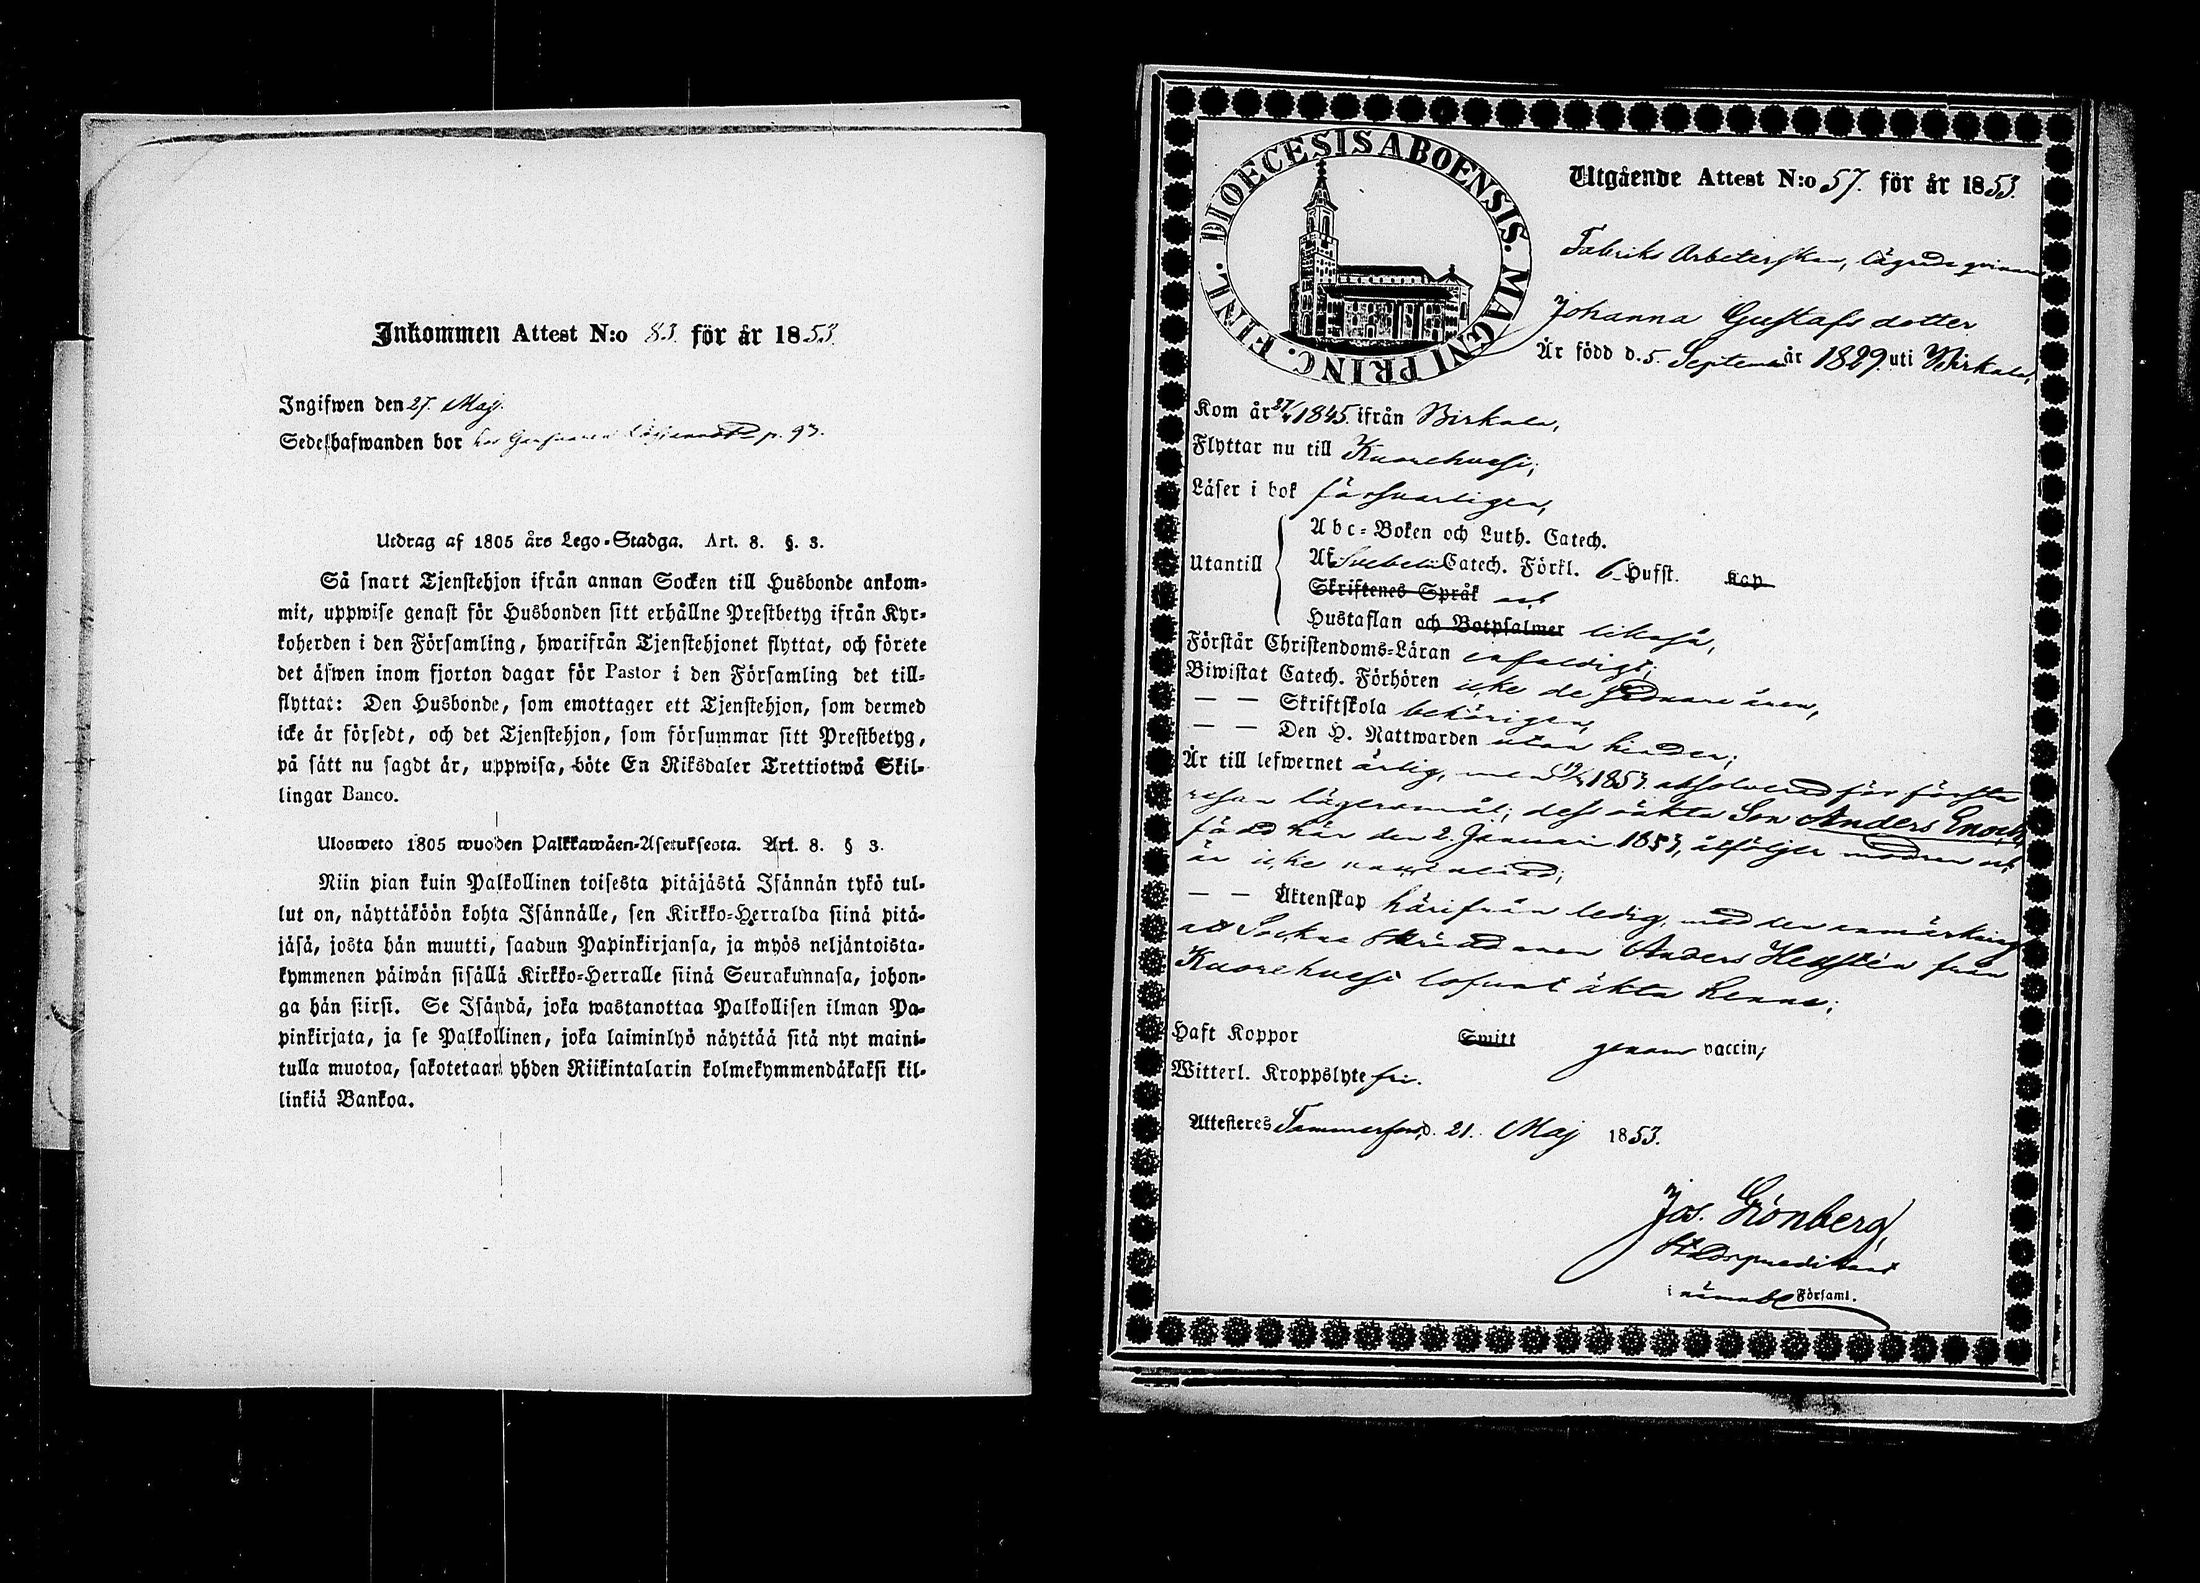 Inkommen Attest N:o 83. för år 1853.
Ingifwen den 27. Maj.
Sedelhafwanden bor hos p. 93.
Utdrag af 1805 års Lego-Stadga. Art. 8. §. 3.
Så snart Tjenstehjon ifrån annan Socken till Husbonde ankom-
mit, uppwise genast för Husbonden sitt erhållne Prestbetyg ifrån Kyr-
koherden i den Församling, hwarifrån Tjenstehjonet flyttat, och förete
det äfwen inom fjorton dagar för Pastor i den Församling det till-
flyttat: Den Husbonde, som emottager ett Tjenstehjon, som dermed
icke är försedt, och det Tjenstehjon, som försummar sitt Prestbetyg,
på sätt nu sagdt är, uppwisa, böte En Riksdaler Trettiotwå Skil-
lingar Banco.
Ulosweto 1805 wuoden Palkkawäen-Asetuksesta. Art. 8. § 3.
Niin pian kuin Palkollinen toisesta pitäjästä Isännän tykö tul-
lut on, näyttäköön kohta Isännälle, sen Kirkko-Herralda siinä pitä-
jäsä, josta hän muutti, saadun Papinkirjansa, ja myös neljäntoista-
kymmenen päiwän sisällä Kirkko-Herralle siinä Seurakunnasa, johon-
ga hän siirsi. Se Isändä, joka wastanottaa Palkollisen ilman Pa-
pinkirjata, ja se Palkollinen, joka laiminlyö näyttää sitä nyt maini-
tulla muotoa, sakotetaan yhden Riikintalarin kolmekymmendäkaksi kil-
linkiä Bankoa.
DIOECESIS ABOENSIS. MAGNI PRINC. FINL.
Utgående Attest N:o 57. för år 1853.
Fabriks Arbeterskan, lägrade qvinnan
Johanna Gustafsdotter
Är född d. 5. September år 1829. uti Birkala,
Kom år 1845. ifrån Birkala,
Flyttar nu till Kuorehvesi;
Läser i bok försvarligen,
Abc-Boken och Luth. Catech.
Utantill Af Svebelii Catech. Förkl. 6 Hufst. Kap
Skriftenes Språk och
Hustaflan och Botpsalmer likaså,
Förstår Christendoms-Läran enfaldigt;
Biwistat Catech. Förhören icke de sednare åren,
— — Skriftskola behörigen,
— — Den H. Nattwarden utan hinder;
Är till lefwernet ärlig, men 1853. absolverad för första
resan lägersmål; dess oäkta Son Anders Enoch,
född här den 2. Januari 1853, åtföljer modren och
är icke vaccinerad;
— — Äktenskap härifrån ledig, med den anmärkning
att Sockne Skräddaren Anders Hellstén från
Kuorehvesi lofvat äkta henne;
Haft Koppor Smitt genom vaccin;
Witterl. Kroppslyte fri.
Attesteres Tammerfors, d. 21. Maj 1853.
Jos. Grönberg,
Stadspredikant
i nämnde Församl.